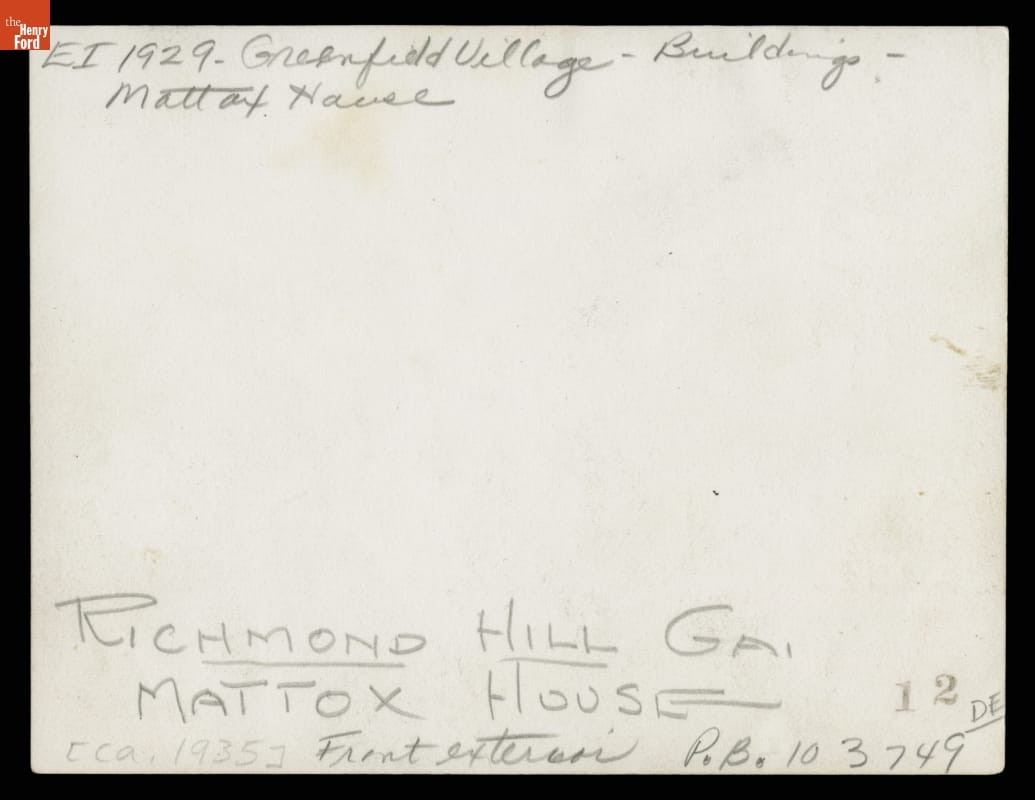 the
Henry
Ford
EI 1929 - Greenfield Village - Buildings -
Mattox House
RICHMOND HILL GA.
MATTOX HOUSE
12
DE
[ca. 1935] Front exterior P.B. 103749